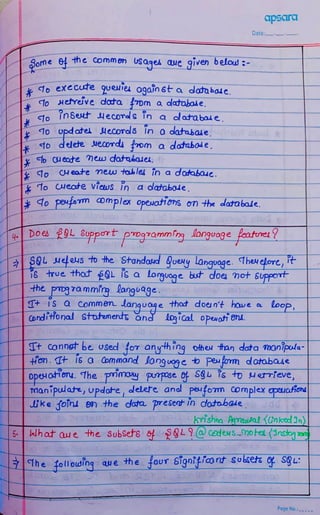 apsara
Date:
Some of the common usages are given below :-
* To execute queries against a database.
* To retreive data from a database.
* To insert records in a database.
* To updates records in a database.
* To delete records from a database.
* To create new databases.
* To create new tables in a database.
* To create views in a database.
* To perform complex operations on the database.
4. Does SQL support programming language features?
→ SQL refers to the Standard Query Language. Therefore, it
is true that SQL is a language but does not support
the programming language.
It is a common language that doesn't have a loop,
conditional statements and logical operations.
It cannot be used for anything other than data manipula-
tion. It is a command language to perform database
operations. The primary purpose of SQL is to retrieve,
manipulate, update, delete and perform complex operations
like joins on the data present in database.
Krishna Agrawal (LinkedIn)
5. What are the subsets of SQL? @codeus_notes (Instagram)
→ The following are the four significant subsets of SQL:
Page No.: